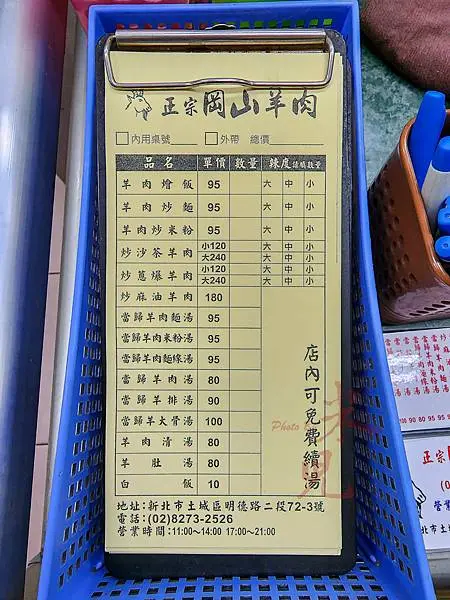 正宗岡山羊肉
內用桌號 外帶 總價
品名 單價 數量 辣度請填數量
羊肉燴飯 95 大 中 小
羊肉炒麵 95 大 中 小
羊肉炒米粉 95 大 中 小
炒沙茶羊肉 小120 大 中 小
大240 大 中 小
炒蔥爆羊肉 小120 大 中 小
大240 大 中 小
炒麻油羊肉 180
當歸羊肉麵湯 95
當歸羊肉米粉湯 95
當歸羊肉麵線湯 95
當歸羊肉湯 80
當歸羊排湯 90
當歸羊大骨湯 100
羊肉清湯 80
羊肚湯 80
白飯 10
店內可免費續湯
Photo 米見
地址:新北市土城區明德路二段72-3號
電話:(02)8273-2526
營業時間:11:00~14:00 17:00~21:00
正宗
(0
營業
北市土